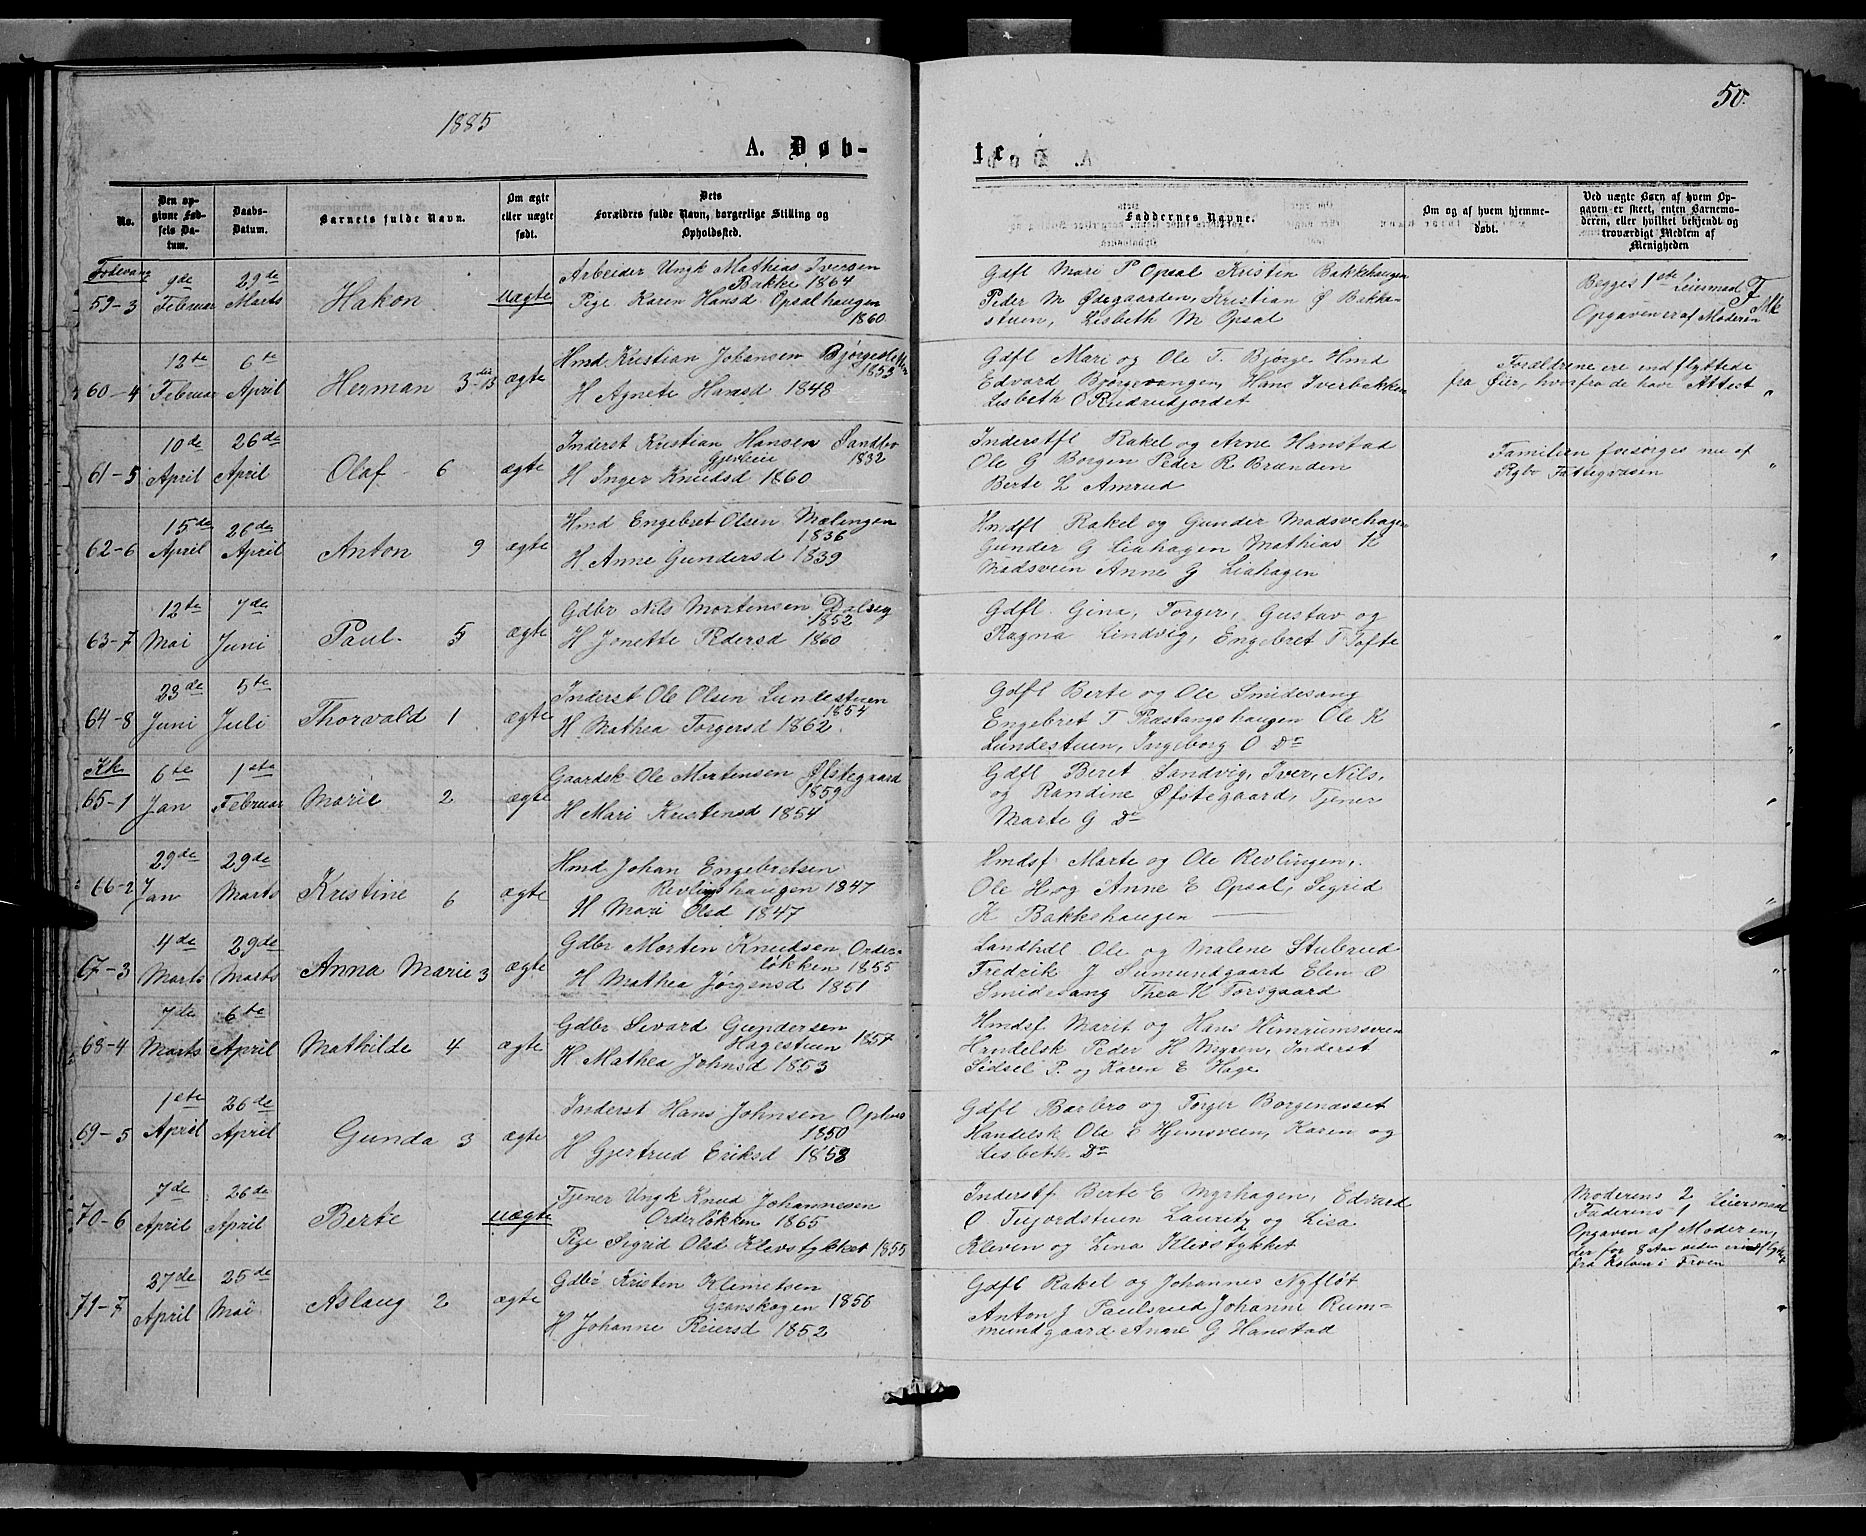 1885
50.
A. Døb-
te.
No.
Den opgivne Fødsels Datum.
Daabs-Datum.
Barnets fulde Navn.
Om ægte eller uægte født.
Dets Forældres fulde Navn, borgerlige Stilling og Opholdssted.
Faddernes Navne.
Om og af hvem hjemmedøbt.
Ved uægte Børn af hvem Opgaven er skeet, enten Barnemoderen, eller hvilket bekjendt og troværdigt Medlem af Menigheden
Fodvang
59-3
9de Februar
29de Marts
Hakon
uægte
Arbeider Ungk Mathias Iversen
Bakke 1864
Pige Karen Hansd Opsalhaugen
1860
Gdfl Mari P Opsal Kristin Bakkehaugen
Peder M Ødegaarden, Kristian Ø Bakke-
stuen, Lisbeth M Opsal
Begges 1ste Leiermaal
Opgaven er af Moderen
60-4
12te Februar
6te April
Herman 3-13
ægte
Hmd Kristian Johansen Bjørgeslekken
1853
H Agnete Hansd 1848
Gdfl Mari og Ole T. Bjørge Hmd
Edvard Bjørgevangen, Hans Iverbakken
Lisbeth O Rudrudjordet
Forældrene ere indflyttede
fra Øier, hvorfra de have Attest "
61-5
10de April
26de April
Olaf 6
ægte
Inderst Kristian Hansen Sandbo
1832
H Inger Knudsd 1860
Inderstfl Rakel og Arne Hanstad
Ole G Borgen Peder R Brænden
Berte L Amrud
Familien forsørges nu af
Rgbo Fattigvæsen "
62-6
15de April
26de April
Anton 9
ægte
Hmd Engebret Olsen Mælingen
1836
H Anne Gundersd 1839
Hmdfl Rakel og Gunder Madsvehagen
Gunder G Liahagen Mathias K
Madsveen Anne G Liahagen "
63-7
12te Mai
7de Juni
Paul 5
ægte
Gdbr Nils Mortensen Dalseg
1852
H Jonette Pedersd 1860
Gdfl. Gina, Torger, Gustav og
Ragna Lindvig, Engebret T Tofte "
64-8
23de Juni
5te Juli
Thorvald 1
ægte
Inderst Ole Olsen Lundestuen
1854
H Mathea Torgersd 1862.
Gdfl Berte og Ole Smidesang
Engebret T Præstangshaugen Ole K
Lundestuen, Ingeborg O Do "
Kk
65-1
6te Jan
1ste Februar
Marie 2
ægte
Gaardsk Ole Mortensen Øfstegaard
1859
H Mari Kristensd 1854
Gdfl Beret Sandvig, Iver, Nils,
og Randine Øfstegaard, Tjener
Marte G Do "
66-2
29de Jan
29de Marts
Kristine 6
ægte
Hmd Johan Engebretsen
Revlingshaugen 1847
H Mari Olsd 1847
Hmdsf Marte og Ole Revlingen,
Ole H og Anne E Opsal, Sigrid
K Bakkehaugen "
67-3
4de Marts
29de Marts
Anna Marie 3
ægte
Gdbr Morten Knudsen Order-
løkken 1855
H Mathea Jørgensd 1851
Landhdl Ole og Malene Stubrud
Fredrik J Sumundgaard Elen O
Smidesang Thea K Forsgaard "
68-4
7de Marts
6te April
Mathilde 4
ægte
Gdbr Sivard Gundersen
Hagestuen 1857
H Mathea Johnsd 1853
Hmdsf Marit og Hans Himrumsveen
Handelsk Peder H Myren, Inderst
Sidsel P. og Karen E Hage "
69-5
1ste April
26de April
Gunda 3
ægte
Inderst Hans Johnsen
1850
H Gjertrud Eriksd 1853
Gdfl Barbro og Torger Borgenæsset
Handelsk Ole E Hjemsveen, Karen og
Lisbeth Do "
70-6
7de April
26de April
Berte
uægte
Tjener Ungk Knud Johannesen
Orderløkken 1865
Pige Sigrid Olsd Klevstykket 1855
Inderstf Berte E Myrhagen, Edvard
O Tujordstuen Lauritz og Lisa
Kleven og Lina Klevstykket
Moderens 2 Leiermaal
Faderens 1
Opgaven af Moderen,
der for 8 Aar siden er indflyttet
fra Kolven i Froen
71-7
27de April
25de Mai
Aslaug 2
ægte
Gdbr Kristen Klemetsen
Granskogen 1856
H Johanne Reiersd 1852
Gdfl Rakel og Johannes Nyfløt
Anton J Paulsrud Johanne Rum-
mundgaard Anne G Hanstad "